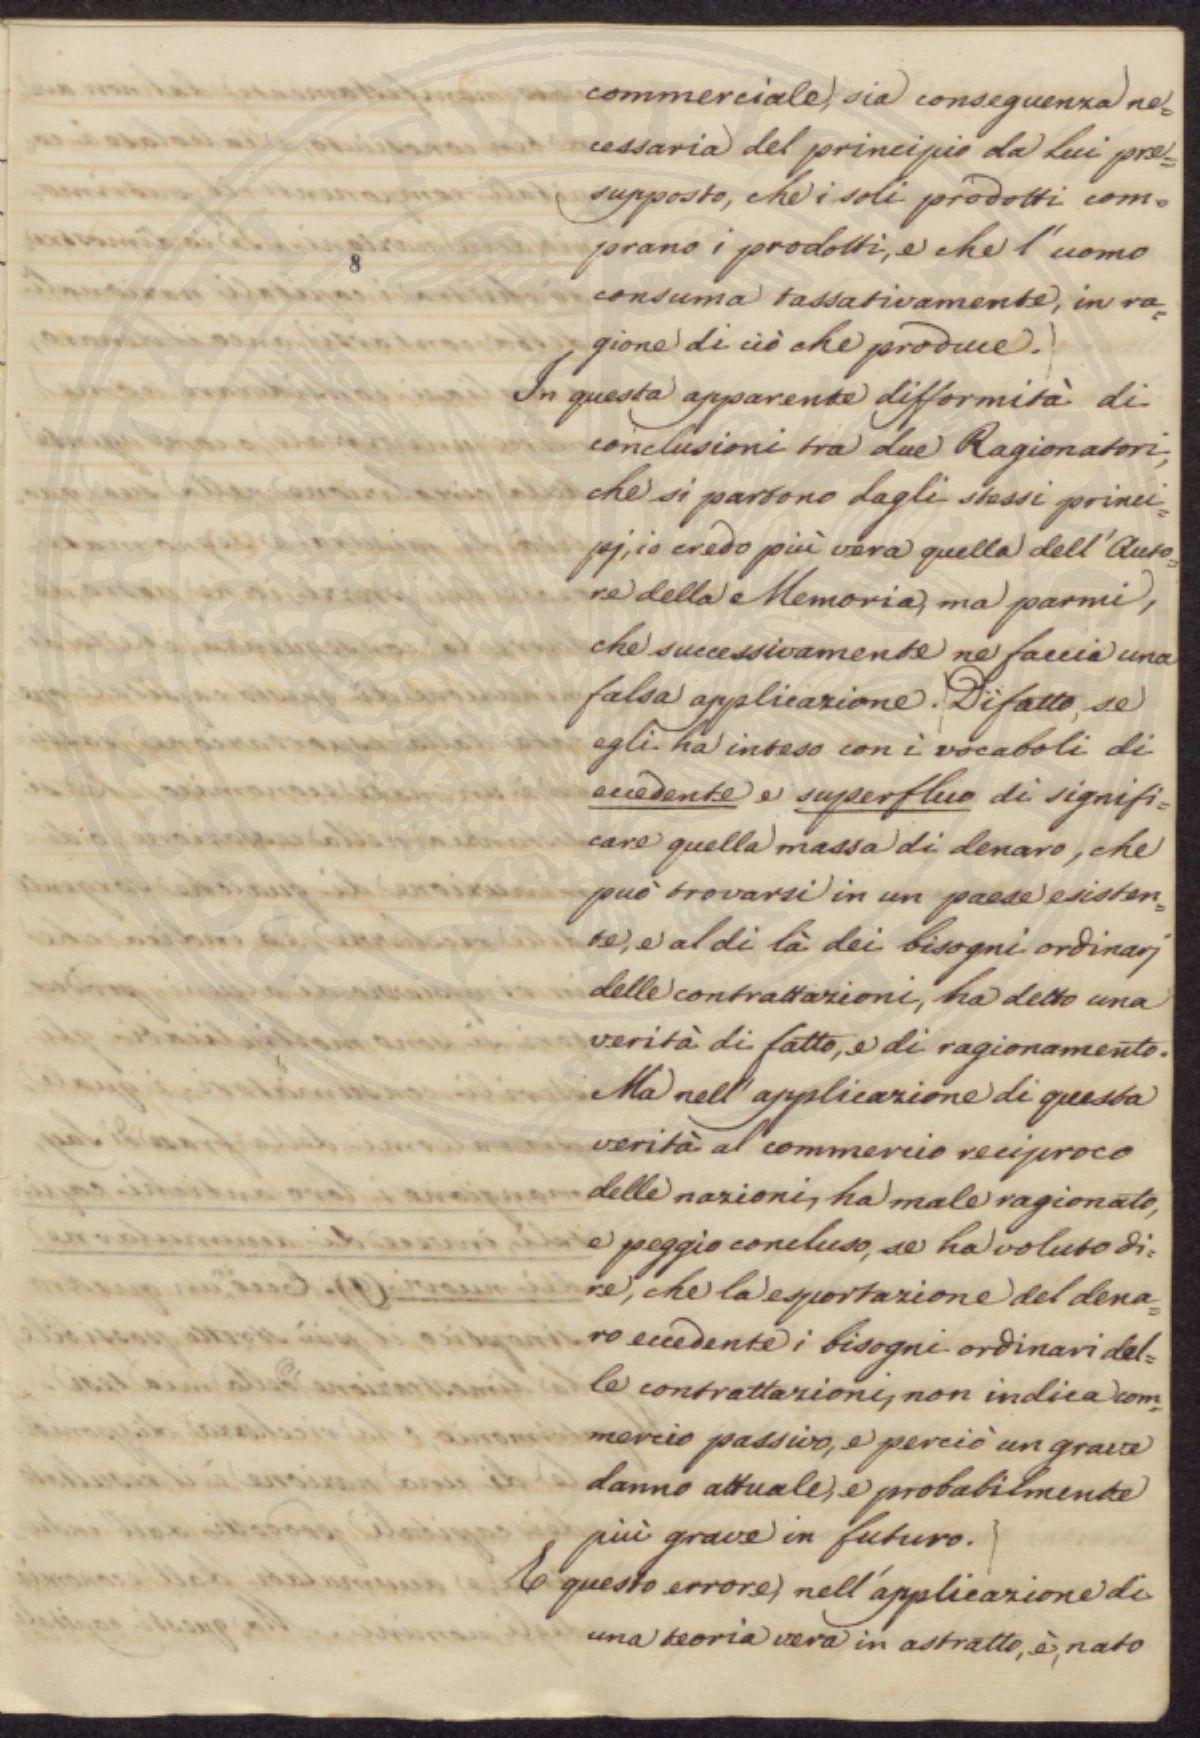 commerciale, sia conseguenza ne=
cessaria del principio da Lui pre=
supposto, che i soli prodotti com=
prano i prodotti, e che l'uomo
8
consuma tassativamente, in ra=
gione di ciò che produce.
In questa apparente difformità di
conclusioni tra due Ragionatori,
che si partono dagli stessi princi=
pj, io credo più vera quella dell'Auto=
re della Memoria, ma parmi,
che successivamente ne faccia una
falsa applicazione. Difatto, se
egli ha inteso con i vocaboli di
eccedente e superfluo di signifi=
care quella massa di denaro, che
può trovarsi in un paese esisten=
te, e al di là dei bisogni ordinarj
delle contrattazioni, ha detto una
verità di fatto, e di ragionamento.
Ma nell'applicazione di questa
verità al commercio reciproco
delle nazioni, ha male ragionato,
e peggio concluso, se ha voluto di=
re, che la esportazione del dena=
ro eccedente i bisogni ordinari del=
le contrattazioni, non indica com=
mercio passivo, e perciò un grave
danno attuale, e probabilmente
più grave in futuro.
E questo errore, nell'applicazione di
una teoria vera in astratto, è, nato